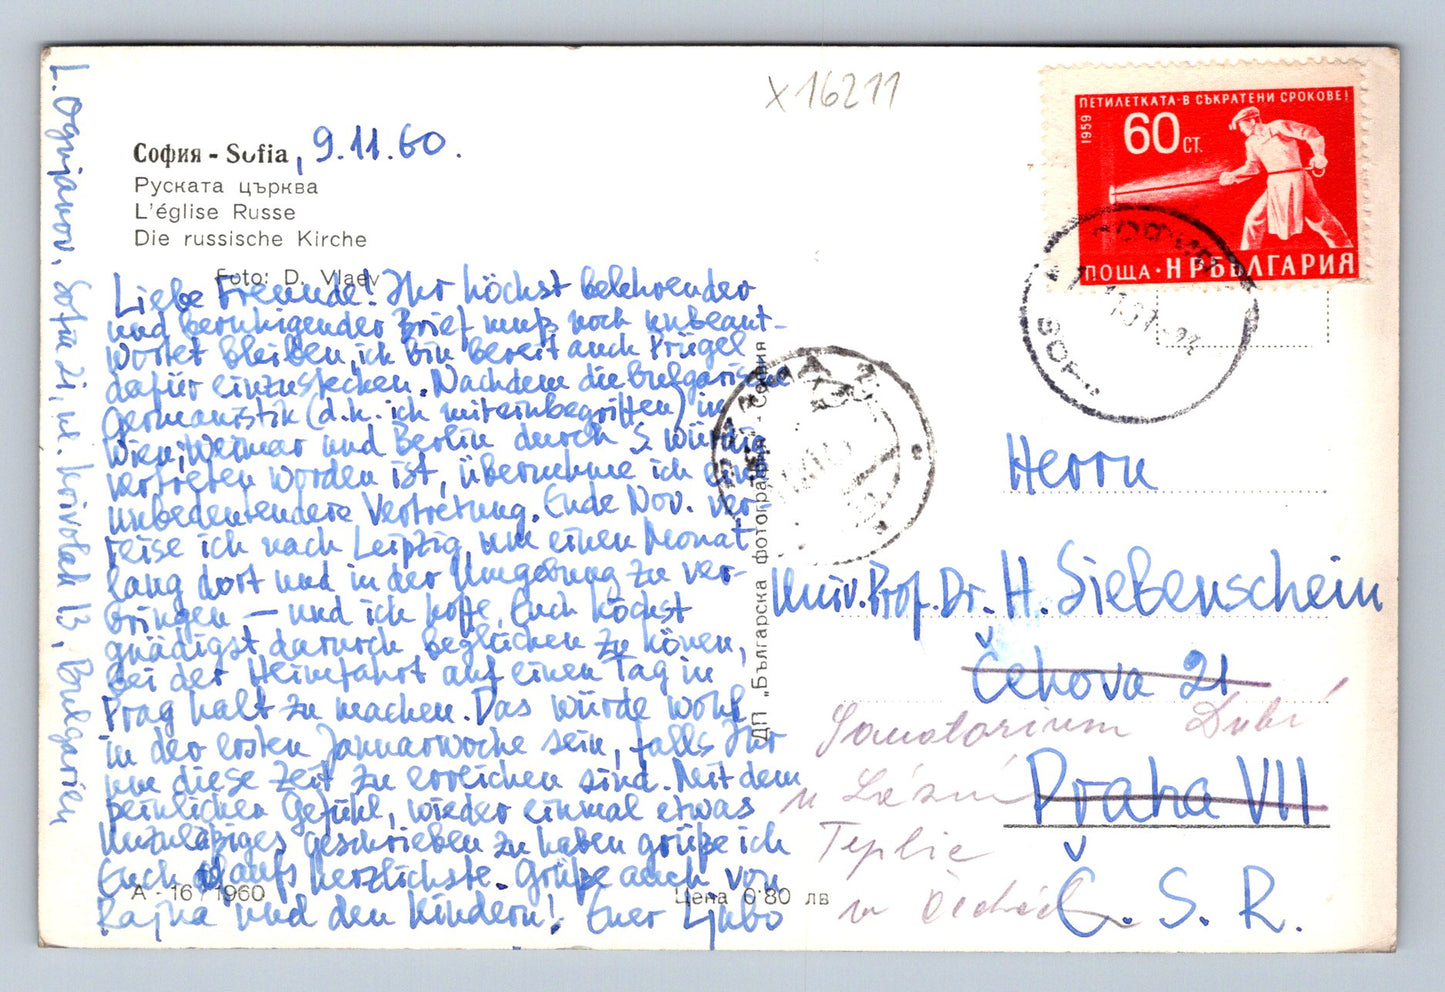 X 16211
София - Sofia, 9.11.60.
Руската църква
L'église Russe
Die russische Kirche
Foto: D. Vlaev
Liebe Freunde! Ihr höchst belehrender
und beruhigender Brief muß noch unbeant-
wortet bleiben, ich bin bereit auch Prügel
dafür einzustecken. Nachdem die bulgarische
Germanistik (d.h. ich miteinbegriffen) in
Wien, Weimar und Berlin durch S. würdig
vertreten worden ist, übernehme ich eine
unbedeutendere Vertretung. Ende Nov. ver-
reise ich nach Leipzig, um einen Monat
lang dort und in der Umgebung zu ver-
bringen — und ich hoffe, Euch höchst
gnädigst darurch beglücken zu könen,
bei der Heimfahrt auf einen Tag in
Prag halt zu machen. Das würde wohl
in der ersten Januarwoche sein, falls Ihr
um diese Zeit zu erreichen sind. Mit dem
peinlichen Gefühl, wieder einmal etwas
Unzuläßiges geschrieben zu haben grüße ich
Euch aufs herzlichste. Grüße auch von
Rajna und den Kindern! Euer Ljubo
L. Ognjanov, Sofia 21, ul. Krivolak 13, Bulgarien
А - 16 / 1960
Цена 0·80 лв
ДП „Българска фотография" - София
ПЕТИЛЕТКАТА - В СЪКРАТЕНИ СРОКОВЕ!
1959
60 СТ.
ПОЩА · НР БЪЛГАРИЯ
Herrn
Univ. Prof. Dr. H. Siebenschein
Čehova 21
Sanatorium Dubí
u Lázní
Praha VII
Teplic
v Čechách
Č. S. R.